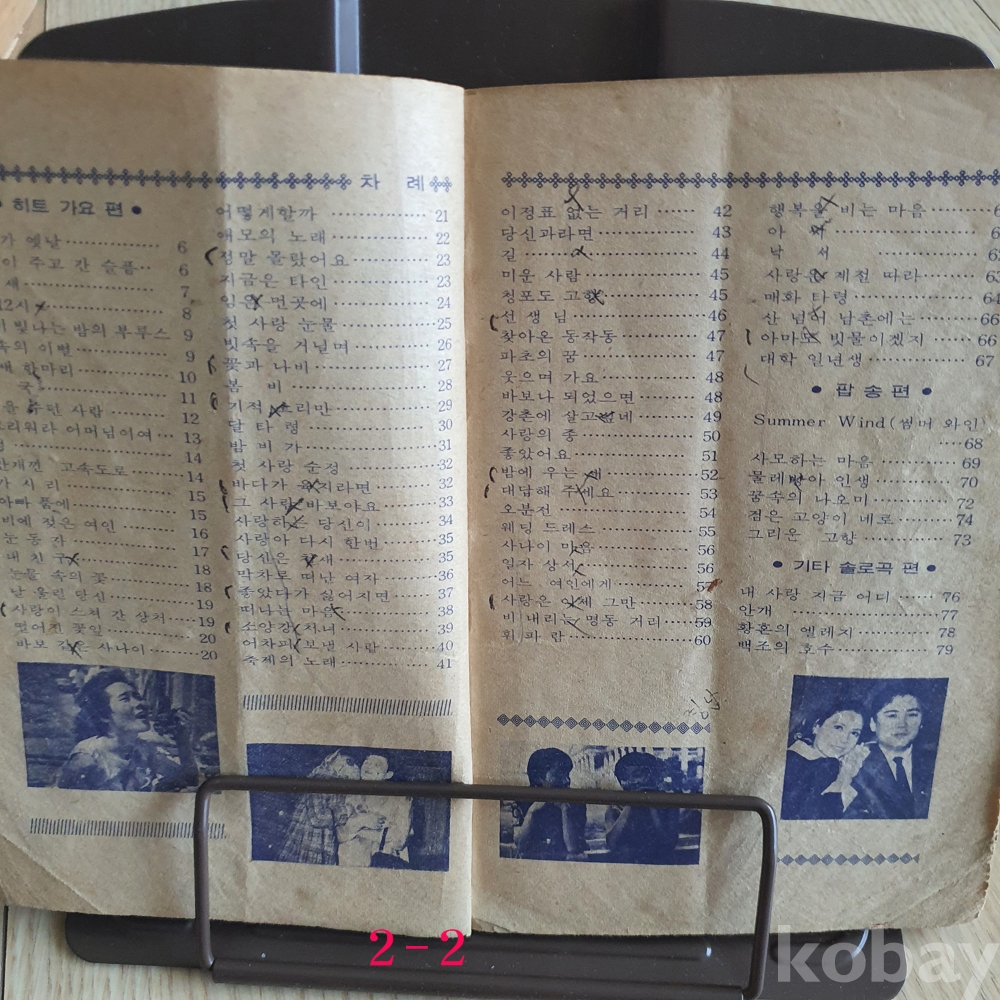 차 례
히트 가요 편 •
가 옛날 ············ 6
이 주고 간 슬픔·· 6
새 ············ 7
12시 ············ 8
빛나는 밤의 부루스 9
속의 이번 ········ 9
한마리 ·········· 10
국 ············ 11
사람 ········ 12
어머님이여··· 13
14
안개낀 고속도로 ···· 14
가 시 리 ············ 15
아빠 품에 ·········· 15
비에 젖은 여인 ······ 16
눈 동 자 ············ 17
내 친구 ············ 18
눈물 속의 꽃 ········ 18
날 울린 당신 ········ 19
사랑이 스쳐 간 상처··· 19
떨어진 꽃잎 ·········· 20
바보 같은 사나이······ 20
어떻게할까 ············ 21
애모의 노래 ············ 22
정말 몰랐어요 ·········· 23
지금은 타인 ············ 23
임은 먼곳에 ············ 24
첫 사랑 눈물 ············ 25
빗속을 거닐며 ·········· 26
꽃과 나비 ············ 27
봄 비 ············ 28
기적 소리만 ············ 29
달 타 령 ············ 30
밤 비 가 ············ 31
첫 사랑 순정 ············ 32
바다가 육지라면 ········ 32
그 사람 바보야요 ········ 33
사랑하는 당신이 ········ 34
사랑아 다시 한번 ········ 35
당신은 철새 ············ 35
막차로 떠난 여자 ········ 36
좋았다가 싫어지면 ······ 37
떠나는 마음 ············ 38
소양강 처녀 ············ 39
어차피 보낸 사람 ········ 40
축제의 노래 ············ 41
이정표 없는 거리 ······ 42
당신과라면 ············ 43
길 ············ 44
미운 사람 ············ 45
청포도 고향 ············ 45
선 생 님 ············ 46
찾아온 동작동 ·········· 47
파초의 꿈 ············ 47
웃으며 가요 ············ 48
바보나 되었으면 ········ 48
강촌에 살고싶네 ········ 49
사랑의 종 ············ 50
좋았어요 ············ 51
밤에 우는 새 ············ 52
대답해 주세요 ·········· 53
오분전 ············ 54
웨딩 드레스 ············ 55
사나이 마음 ············ 56
임자 상서 ············ 56
어느 여인에게 ·········· 57
사랑은 이제 그만 ········ 58
비 내리는 명동 거리 ···· 59
휘 파 람 ············ 60
행복을 비는 마음 ······ 6
아 ············ 6
낙 서 ············ 62
사랑은 계절 따라········ 63
매화 타령 ············ 64
산 넘어 남촌에는 ········ 66
아마도 빗물이겠지 ······ 66
대학 일년생 ············ 67
• 팝 송 편 •
Summer Wind(썸머 와인)
············ 68
사모하는 마음 ·········· 69
물레방아 인생 ·········· 70
꿈속의 나오미 ·········· 72
검은 고양이 네로 ········ 74
그리운 고향 ············ 73
• 기타 솔로곡 편 •
내 사랑 지금 어디 ······ 76
안개 ············ 77
황혼의 엘레지 ·········· 78
백조의 호수 ············ 79
2-2
kobay